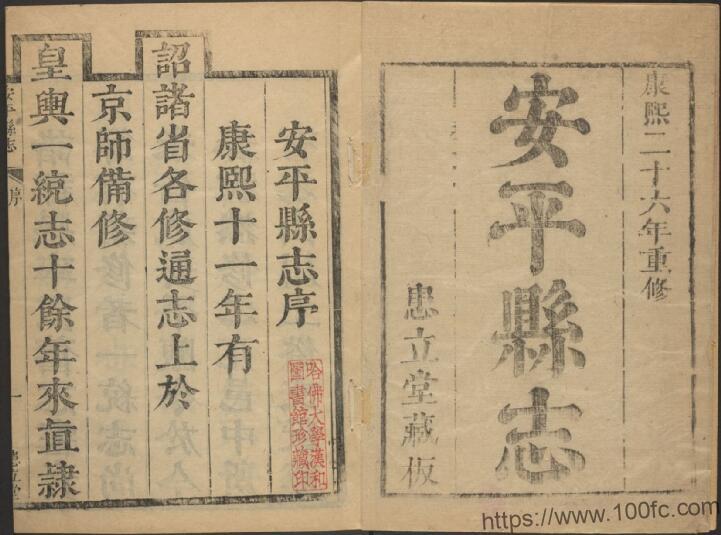 康熙二十六年重修
安平縣志
忠立堂藏板
安平縣志序
康熙十一年有
詔諸省各修通志上於
京師備修
皇輿一統志十餘年來直隷
哈佛大學漢和
圖書館珍藏印
安平縣志
序
一
忠立堂
https://www.100fc.com